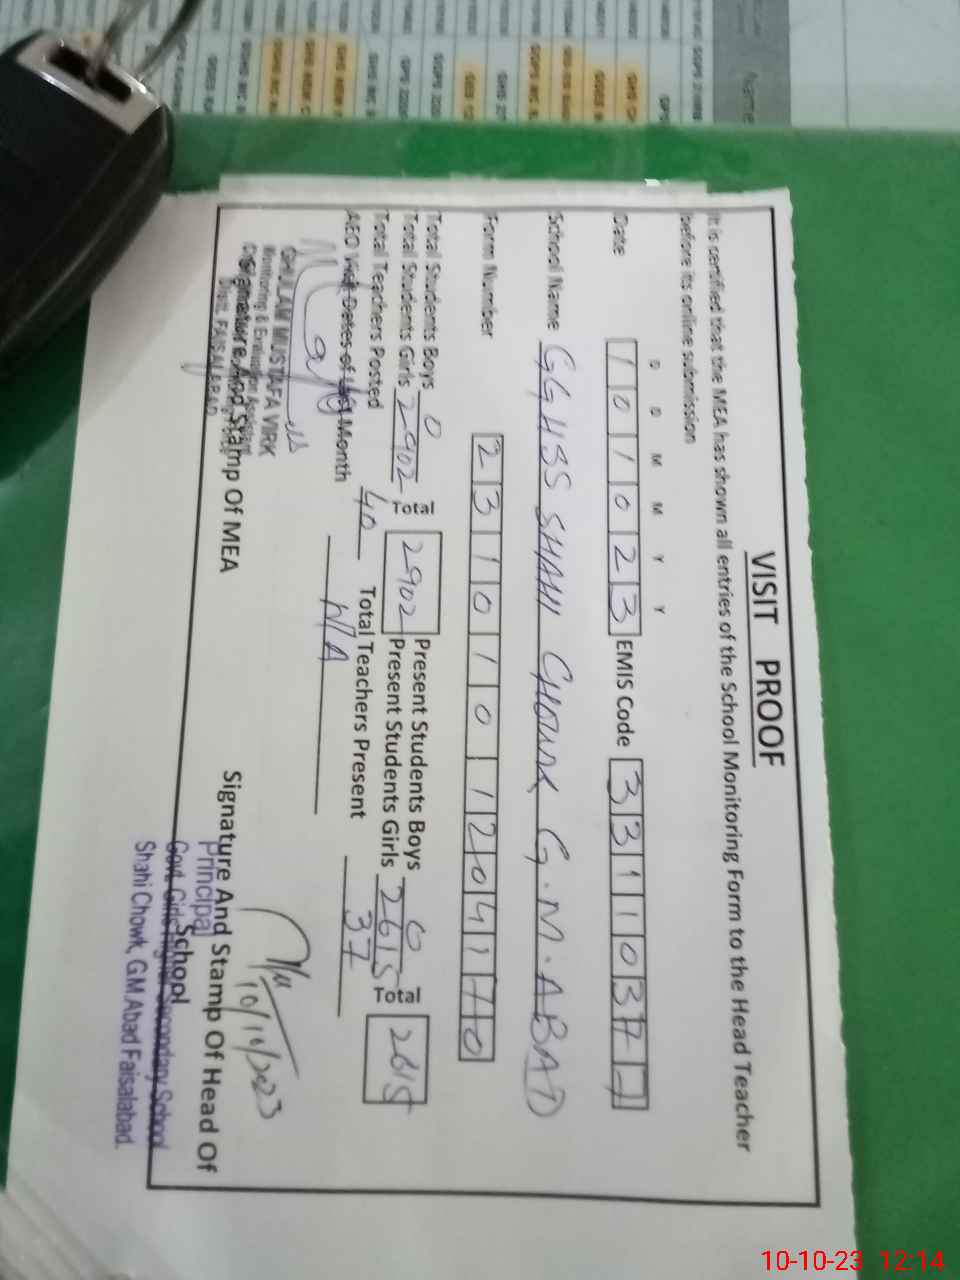 VISIT PROOF
It is certified that the MEA has shown all entries of the School Monitoring Form to the Head Teacher
before its online submission
D D M M Y Y
Date 1 0 1 0 2 3 EMIS Code 3 3 1 1 0 3 7 7
School Name GGHSS SHAHI CHOWK G.M.ABAD
Form Number 2 3 1 0 1 0 1 2 0 4 1 7 0
Total Students Boys 0 Present Students Boys 0
Total Students Girls 2902 Total 2902 Present Students Girls 2615 Total 2615
Total Teachers Posted 40 Total Teachers Present 37
AEO Visit Dates of Last Month N/A
10/10/2023
GHULAM MUSTAFA VIRK
Monitoring & Evaluation Assistant
Signature And Stamp Of MEA
Distt. FAISALABAD
Signature And Stamp Of Head Of
School
Principal
Govt. Girls Higher Secondary School
Shahi Chowk, G.M.Abad Faisalabad.
Name
10-10-23 12:14